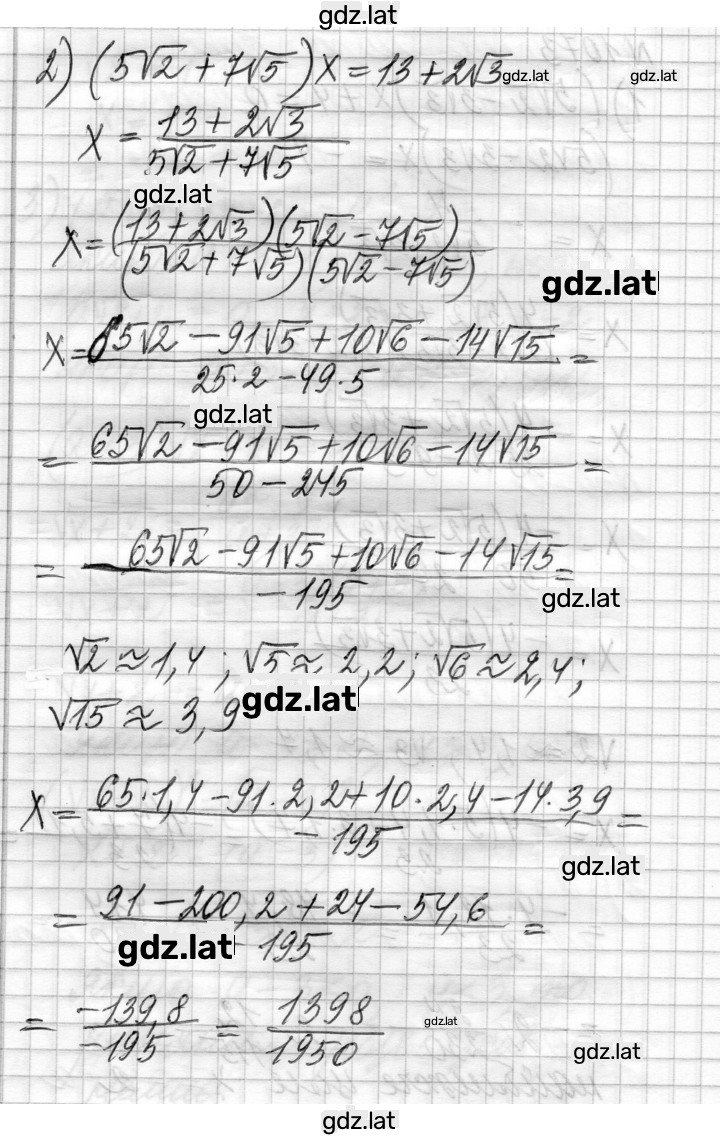 gdz.lat
2) (5√2 + 7√5) x = 13 + 2√3 gdz.lat gdz.lat
x = (13 + 2√3)/(5√2 + 7√5)
gdz.lat
x = ((13 + 2√3)(5√2 - 7√5))/((5√2 + 7√5)(5√2 - 7√5))
gdz.lat
x = (65√2 - 91√5 + 10√6 - 14√15)/(25·2 - 49·5) =
gdz.lat
= (65√2 - 91√5 + 10√6 - 14√15)/(50 - 245) =
= (65√2 - 91√5 + 10√6 - 14√15)/(-195) =
gdz.lat
√2 ≈ 1,4; √5 ≈ 2,2; √6 ≈ 2,4;
gdz.lat
√15 ≈ 3,9
x = (65·1,4 - 91·2,2 + 10·2,4 - 14·3,9)/(-195) =
gdz.lat
= (91 - 200,2 + 24 - 54,6)/(-195) =
gdz.lat
= (-139,8)/(-195) = 1398/1950
gdz.lat
gdz.lat
gdz.lat